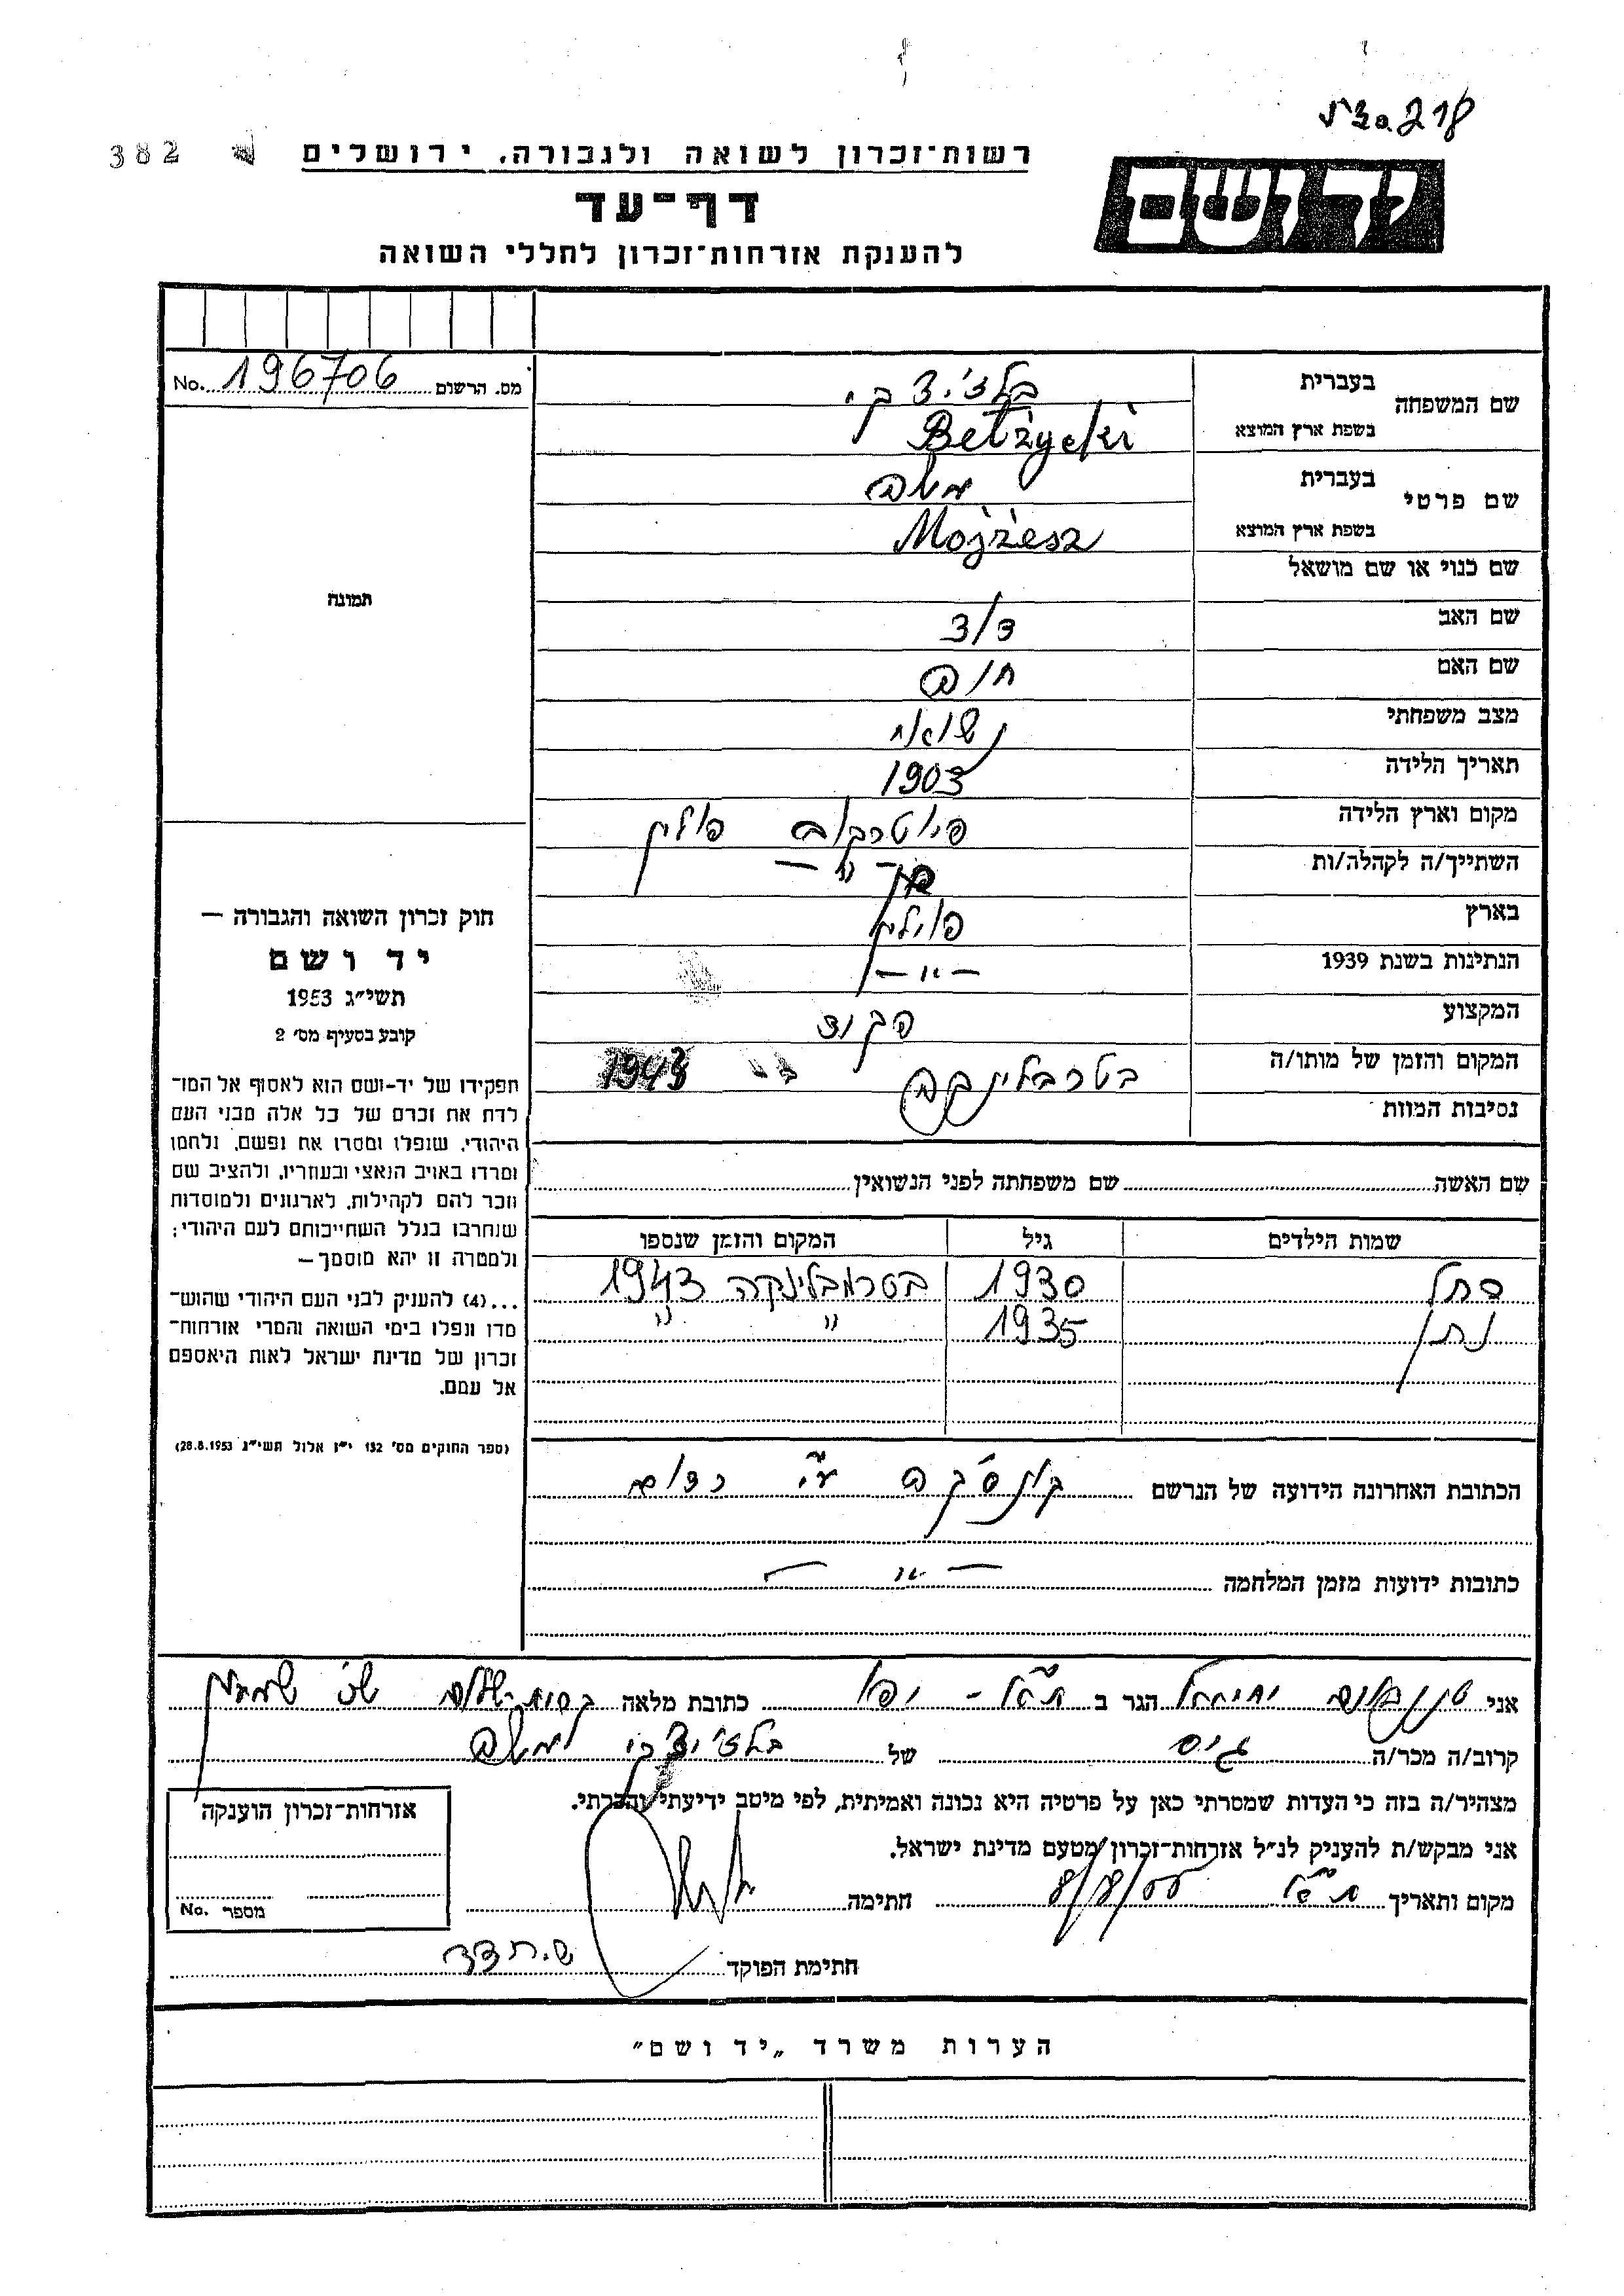 218
382
רשות־זכרון לשואה ולגבורה, ירושלים
יד ושם
דף־עד
להענקת אזרחות־זכרון לחללי השואה
מס. הרשום 196706 No.
שם המשפחה
בעברית בלז'יצקי
בשפת ארץ המוצא Bełżycki
שם פרטי
בעברית משה
בשפת ארץ המוצא Mojżesz
שם כנוי או שם מושאל
שם האב דוד
שם האם חוה
מצב משפחתי נשוא
תאריך הלידה 1903
מקום וארץ הלידה פיוטרקוב פולין
השתייך/ה לקהלה/ות — " —
בארץ פולין
הנתינות בשנת 1939 — " —
המקצוע
המקום והזמן של מותו/ה בטרבלינקה 1943
נסיבות המוות
תמונה
חוק זכרון השואה והגבורה —
יד ושם
תשי״ג 1953
קובע בסעיף מס׳ 2
תפקידו של יד-ושם הוא לאסוף אל המו־
לדת את זכרם של כל אלה מבני העם
היהודי, שנפלו ומסרו את נפשם, נלחמו
ומרדו באויב הנאצי ובעוזריו, ולהציב שם
וזכר להם לקהילות, לארגונים ולמוסדות
שנחרבו בגלל השתייכותם לעם היהודי;
ולמטרה זו יהא מוסמך—
...(4) להעניק לבני העם היהודי שהוש־
מדו ונפלו בימי השואה והמרי אזרחות־
זכרון של מדינת ישראל לאות היאספם
אל עמם.
(ספר החוקים מס׳ 132 י״ז אלול תשי״ג 28.8.1953)
שם האשה שם משפחתה לפני הנשואין
שמות הילדים גיל המקום והזמן שנספו
רחל 1930 בטרבלינקה 1943
נתן 1935 " "
הכתובת האחרונה הידועה של הנרשם קונסקה ע"י רדום
כתובות ידועות מזמן המלחמה — " —
אני טננבוים יחיאל הגר ב ת"א - יפו כתובת מלאה
קרוב/ה מכר/ה גיס של בלז'יצקי משה
מצהיר/ה בזה כי העדות שמסרתי כאן על פרטיה היא נכונה ואמיתית, לפי מיטב ידיעתי והכרתי.
אני מבקש/ת להעניק לנ״ל אזרחות־זכרון מטעם מדינת ישראל.
מקום ותאריך ת"א חתימה
חתימת הפוקד
אזרחות־זכרון הוענקה
מספר No.
הערות משרד „יד ושם״